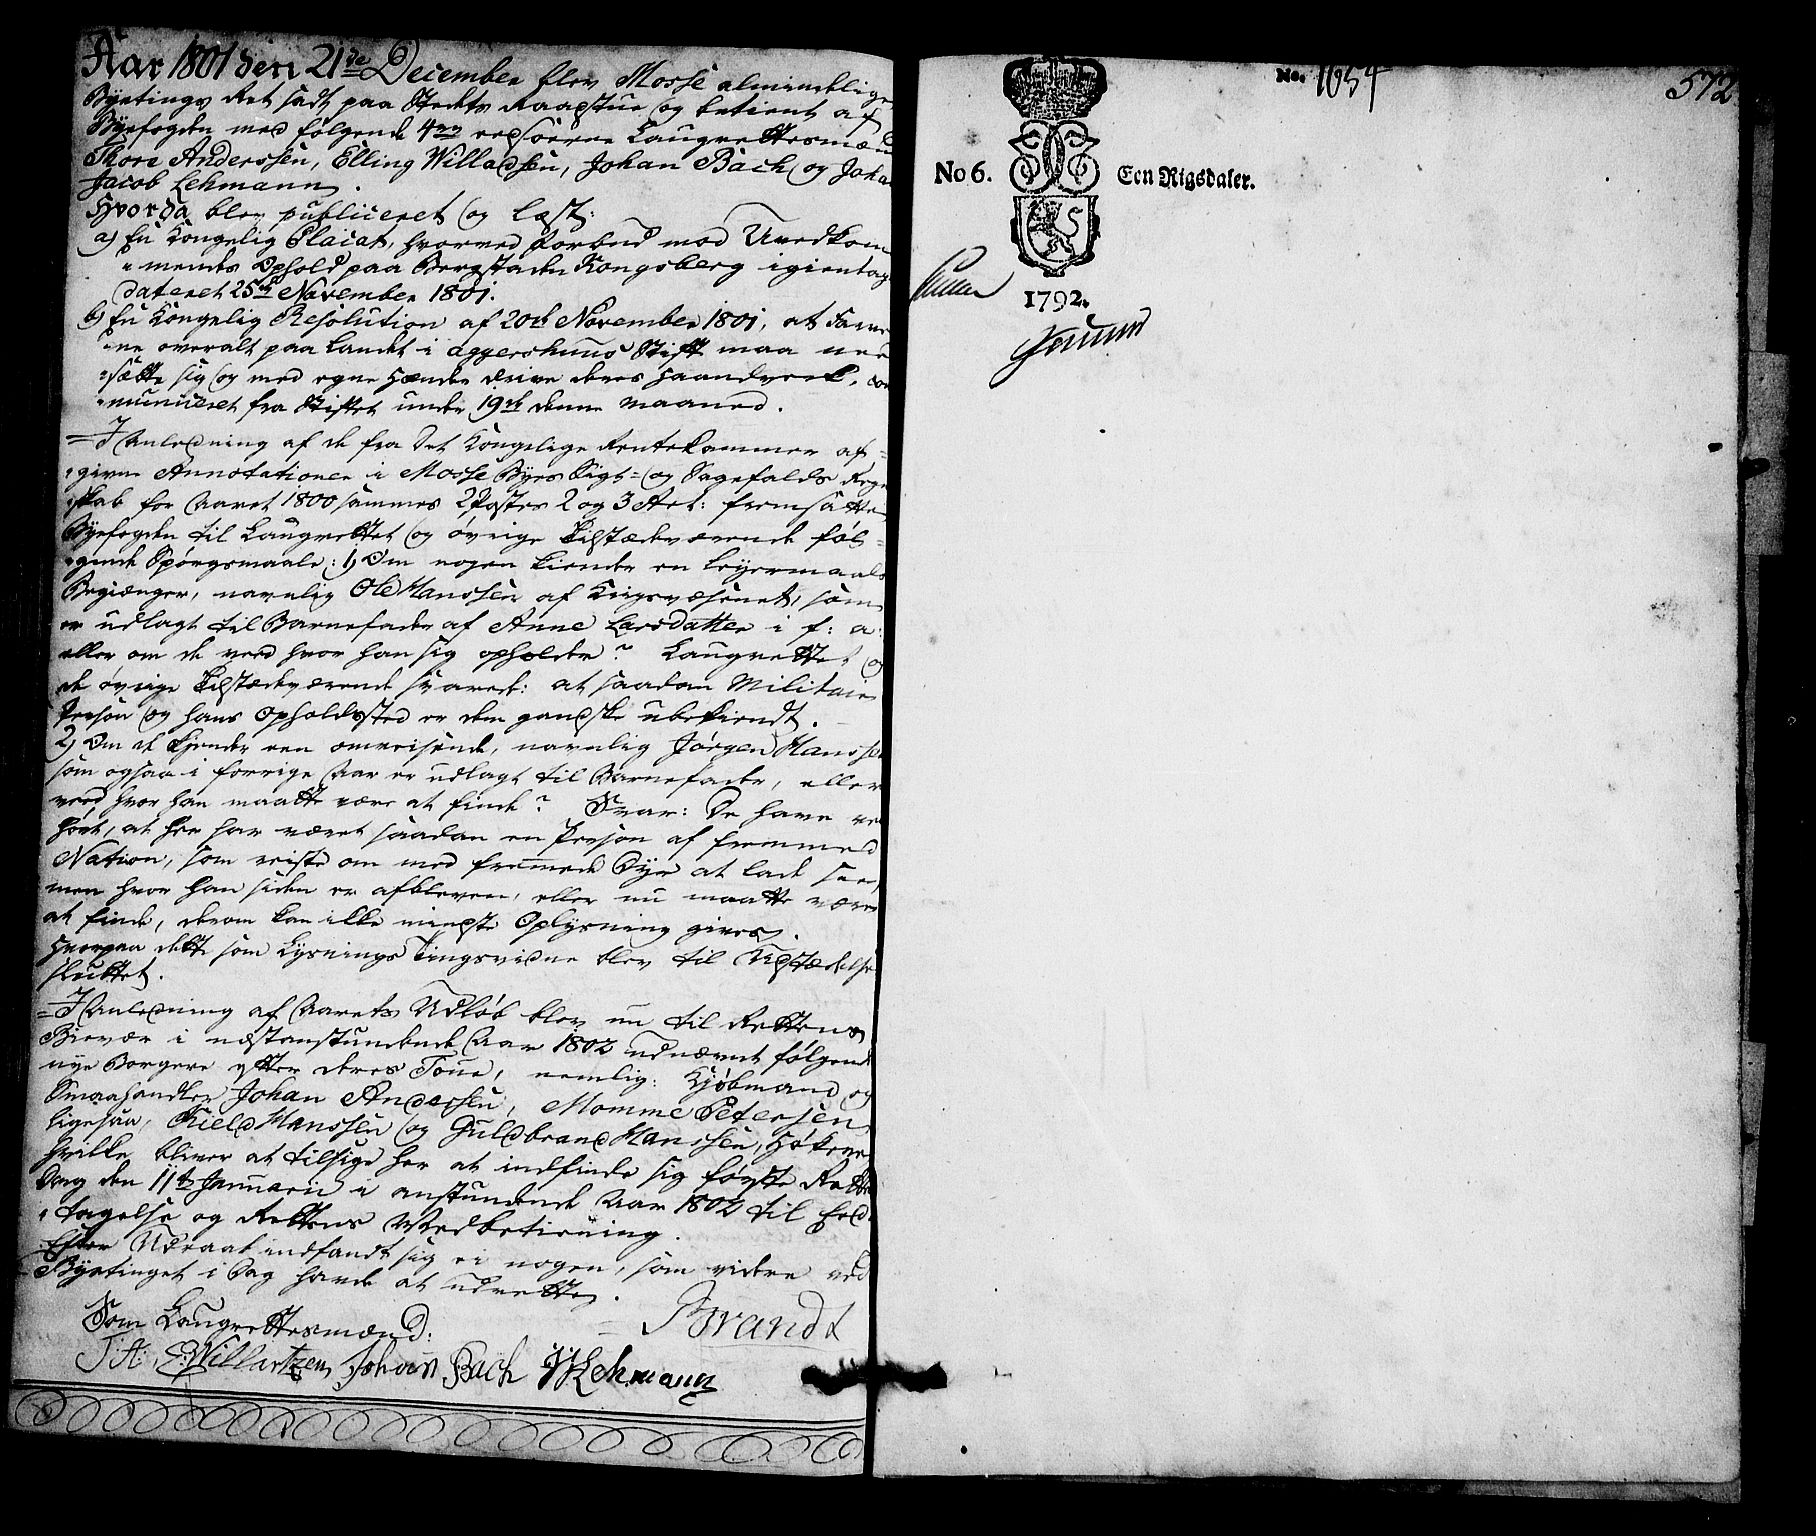 Aar 1801 den 21de December blev Mosse almindelige
Byetings Ret sadt paa Stedets Raadstue og betient af
Byefogden med følgende 4re eedsoerne Laugrettesmænd
Thore Anderssen, Elling Willadsen, Johan Bach og Johan
Jacob Lehmann.
Hvorda blev publiceret og læst:
a) En Kongelig Placat, hvorved Forbud mod Uvedkom-
mendes Ophold paa Bergstaden Kongsberg igientages
dateret 25de November 1801.
b) En Kongelig Resolution af 20de November 1801, at
ne overalt paa Landet i Aggershuus Stift maa ned-
sætte sig og med egne Hænder drive deres Haandverk, com-
municeret fra Stiftet under 19de denne Maaned.
I Anledning af de fra Det Kongelige Rentekammer af-
givne Annotationer i Mosse Byes Sigt- og Sagefalds Regn-
skab for Aaret 1800 sammes 2 Poster 2 og 3 Art: fremsatte
Byefogden til Laugrettet og øvrige Tilstædeværende føl-
gende Spørgsmaale: 1) Om nogen kiender en Leyermaals
Begiænger, navnlig Ole Hanssen af Krigsvæsenet, som
er udlagt til Barnefader af Anne Larsdatter i f: a:
eller om de veed hvor han sig opholder? Laugrettet og
de øvrige Tilstædeværende svarede: at saadan Militair
Person og hans Opholdssted er dem gandske ubekiendt.
2) Om de kiender een omreisende, navnlig Jørgen Hanssen
som ogsaa i forrige Aar er udlagt til Barnefader, eller
veed hvor han maatte være at finde? Svar: De have vel
hørt, at her har været saadan en Person af fremmed
Nation, som reiste om med fremmede Dyr at lade see,
men hvor han siden er afbleven, eller nu maatte være
at finde, derom kan ikke mindste Oplysning gives.
Hvorpaa dette som Lysnings Tingsvidne blev til Udstædelse
sluttet.
I Anledning af Aarets Udløb blev nu til Rettens
Bievær i næstanstundende Aar 1802 udnævnt følgende
nye Borgere efter deres Tour, nemlig: Kjøbmand og
Smaahandler Johan Anderssen, Momme Petersen
ligesaa, Kield Hanssen og Guldbrand Hanssen, Høkere
hvilke bliver at tilsige her at indfinde sig første Rette
Dag den 11te Januarii i anstundende Aar 1802 til Eed-
tagelse og Rettens Medbetiening.
Efter Udraab indfandt sig ei nogen, som videre ved
Byetinget i Dag havde at udrette.
Brandt
Som Laugrettesmænd:
T: A: E: Willartzen, Johan Bach JJLehmann
No. 1654
572
No 6. Een Rigsdaler.
1792.